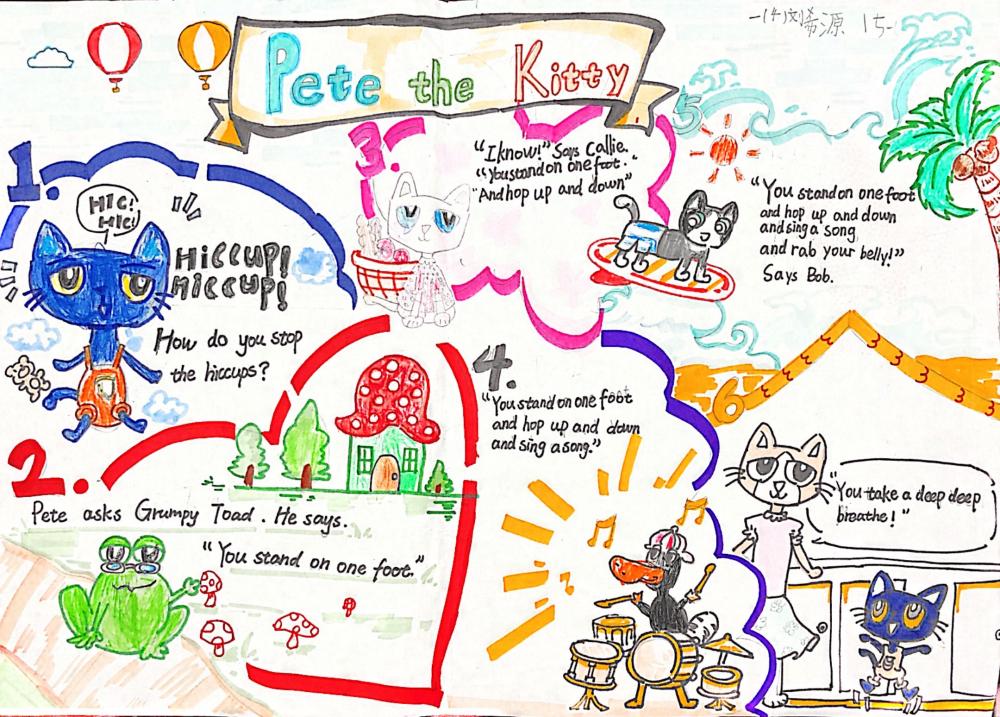 一(4)刘希源 15
Pete the Kitty
1.
HIC!
HIC!
HiCCUP!
HiCCUP!
How do you stop
the hiccups?
2.
Pete asks Grumpy Toad. He says.
"You stand on one foot."
3.
"I know!" Says Callie.
"You stand on one foot.
"And hop up and down"
4.
"You stand on one foot
and hop up and down
and sing a song."
5
"You stand on one foot
and hop up and down
and sing a song
and rab your belly!"
Says Bob.
6
"You take a deep deep
breathe!"